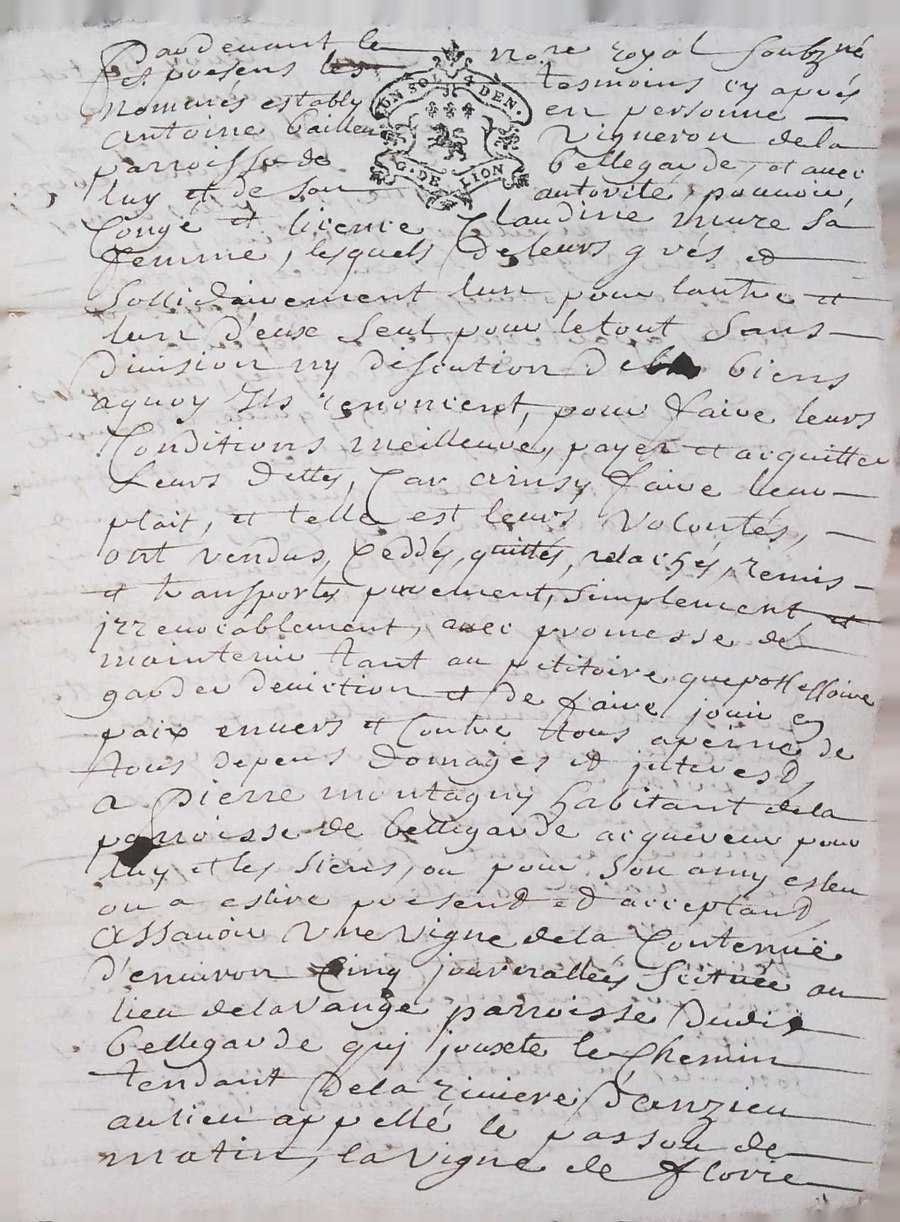 Pardevant le no.re royal soubzné
es presens les tesmoins cy aprés
nommés estably en personne
UN SOL 4 DEN.
antoine vigneron dela
parroisse de bellegarde, et avec
G. DE LION
luy et de son autorité, pouvoir,
Congé et licence Claudine mure sa
femme, lesquels deleurs grés et
sollidairement lun pour lautre et
lun d'eux seul pour letout sans
division ny discution de biens
aquoy Ils renoncent, pour faire leurs
Conditions meilleure, payer et acquitter
Leurs dettes, Car ainsy faire leur
plait, et telle est leurs Volontés,
ont vendus, Ceddés, quittés, relachés, remis
et transportés purement, simplement et
jrrevocablement, avec promesse de
maintenir tant au petitoire que possessoire
garder deviction et de faire jouir en
paix envers et Contre tous apeine de
tous depens domages et jnterest,
a Pierre montagny habitant dela
parroisse de bellegarde acquereur pour
luy et les siens, ou pour son amy esleu
ou a eslire present et acceptant,
assavoir une vigne dela Contenuë
d'environ Cinq journallées scituée au
lieu dela Vange parroisse dudit
bellegarde qui jouxte le Chemin
tendant dela riviere d'anzieu
aulieu appellé le passou de
matin, la vigne de florie